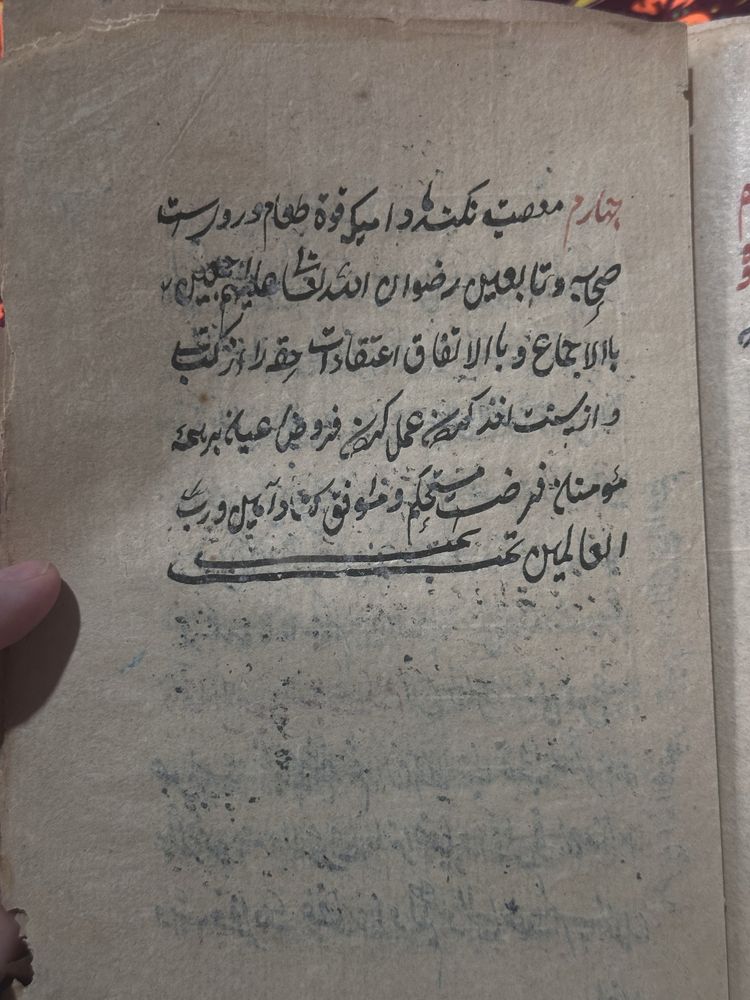 چهارم معصیت نکند مادامیکه قوة طعام در وی است
صحابه و تابعین رضوان الله تعالی علیهم اجمعین
باالاجماع و باالاتفاق اعتقادات حقه را از کتب
و از سنت اخذ کردن عمل کردن فروض عیانه بر همه
مؤمنان فرضیت مستحکم و موفق کناد آمین و رب
العالمین تمت تمت